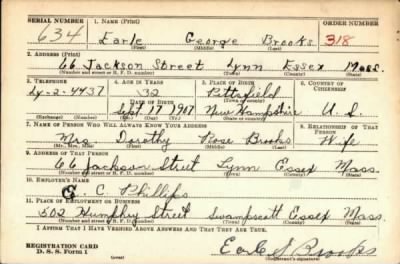 SERIAL NUMBER 1. NAME (Print) ORDER NUMBER
634 Earle George Brooks 318
(First) (Middle) (Last)
2. ADDRESS (Print)
66 Jackson Street Lynn Essex Mass.
(Number and street or R. F. D. number) (Town) (County) (State)
3. TELEPHONE 4. AGE IN YEARS 5. PLACE OF BIRTH 6. COUNTRY OF CITIZENSHIP
Ly-2-4437 32 Pittsfield
DATE OF BIRTH (Town or county)
Sept 17 1907 New Hampshire U. S.
(Exchange) (Number) (Mo.) (Day) (Yr.) (State or country)
7. NAME OF PERSON WHO WILL ALWAYS KNOW YOUR ADDRESS 8. RELATIONSHIP OF THAT PERSON
Mrs. Dorothy Rose Brooks Wife
(Mr., Mrs., Miss) (First) (Middle) (Last)
9. ADDRESS OF THAT PERSON
66 Jackson Street Lynn Essex Mass.
(Number and street or R. F. D. number) (Town) (County) (State)
10. EMPLOYER'S NAME
C. C. Phillips
11. PLACE OF EMPLOYMENT OR BUSINESS
502 Humphry Street Swampscott Essex Mass.
(Number and street or R. F. D. number) (Town) (County) (State)
I AFFIRM THAT I HAVE VERIFIED ABOVE ANSWERS AND THAT THEY ARE TRUE.
REGISTRATION CARD
D. S. S. Form 1 Brooks
(Registrant's signature)